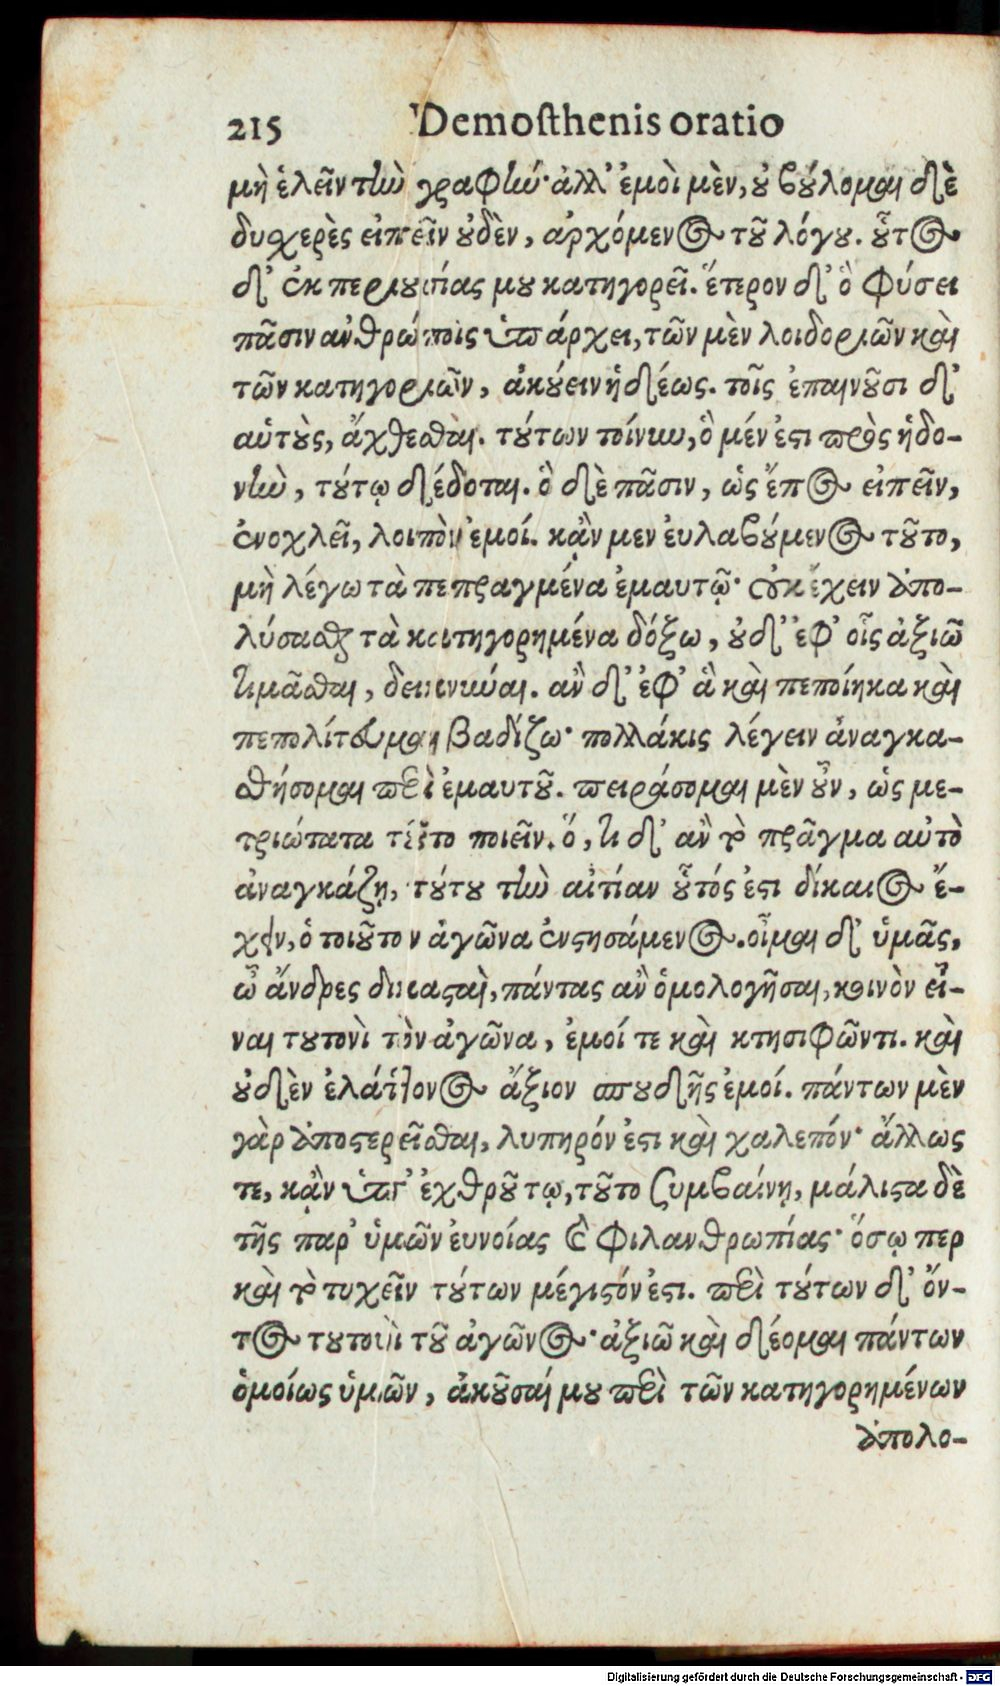 215 Demosthenis oratio
μὴ ἑλεῖν τὴν γραφήν· ἀλλ' ἐμοὶ μὲν, οὐ βούλομαι δὲ
δυχερὲς εἰπεῖν οὐδὲν, ἀρχόμενος τοῦ λόγου. οὗτος
δ' ἐκ περιουσίας μου κατηγορεῖ. ἕτερον δ' ὃ φύσει
πᾶσιν ἀνθρώποις ὑπάρχει, τῶν μὲν λοιδοριῶν καὶ
τῶν κατηγοριῶν, ἀκούειν ἡδέως. τοῖς ἐπαινοῦσι δ'
αὑτοὺς, ἄχθεσθαι. τούτων τοίνυν, ὃ μέν ἐστι πρὸς ἡδο-
νὴν, τούτῳ δέδοται. ὃ δὲ πᾶσιν, ὡς ἔπος εἰπεῖν,
ἐνοχλεῖ, λοιπὸν ἐμοί. κᾂν μεν ἐυλαβούμενος τοῦτο,
μὴ λέγω τὰ πεπραγμένα ἐμαυτῷ· οὐκ ἔχειν ἀπο-
λύσασθαι τὰ κατηγορημένα δόξω, οὐδ' ἐφ' οἷς ἀξιῶ
τιμᾶσθαι, δεικνύναι. ἂν δ' ἐφ' ἃ καὶ πεποίηκα καὶ
πεπολίτευμαι βαδίζω· πολλάκις λέγειν ἀναγκα-
σθήσομαι περὶ ἐμαυτοῦ. πειράσομαι μὲν οὖν, ὡς με-
τριώτατα τοῦτο ποιεῖν. ὅ, τι δ' ἂν τὸ πρᾶγμα αὐτὸ
ἀναγκάζῃ, τούτου τὴν αἰτίαν οὗτός ἐστι δίκαιος ἔ-
χειν, ὁ τοιοῦτον ἀγῶνα ἐνστησάμενος. οἶμαι δ' ὑμᾶς,
ὦ ἄνδρες δικασταὶ, πάντας ἂν ὁμολογῆσαι, κοινὸν εἶ-
ναι τουτονὶ τὸν ἀγῶνα, ἐμοί τε καὶ κτησιφῶντι. καὶ
οὐδὲν ἐλάττονος ἄξιον σπουδῆς ἐμοί. πάντων μὲν
γὰρ ἀποστερεῖσθαι, λυπηρόν ἐστι καὶ χαλεπόν· ἄλλως
τε, κᾂν ὑπ' ἐχθροῦ τῳ, τοῦτο συμβαίνῃ, μάλιστα δὲ
τῆς παρ' ὑμῶν ἐυνοίας καὶ φιλανθρωπίας· ὅσῳ περ
καὶ τὸ τυχεῖν τούτων μέγιστόν ἐστι. περὶ τούτων δ' ὄν-
τος τουτουὶ τοῦ ἀγῶνος· ἀξιῶ καὶ δέομαι πάντων
ὁμοίως ὑμῶν, ἀκοῦσαί μου περὶ τῶν κατηγορημένων
ἀπολο-
Digitalisierung gefördert durch die Deutsche Forschungsgemeinschaft - DFG